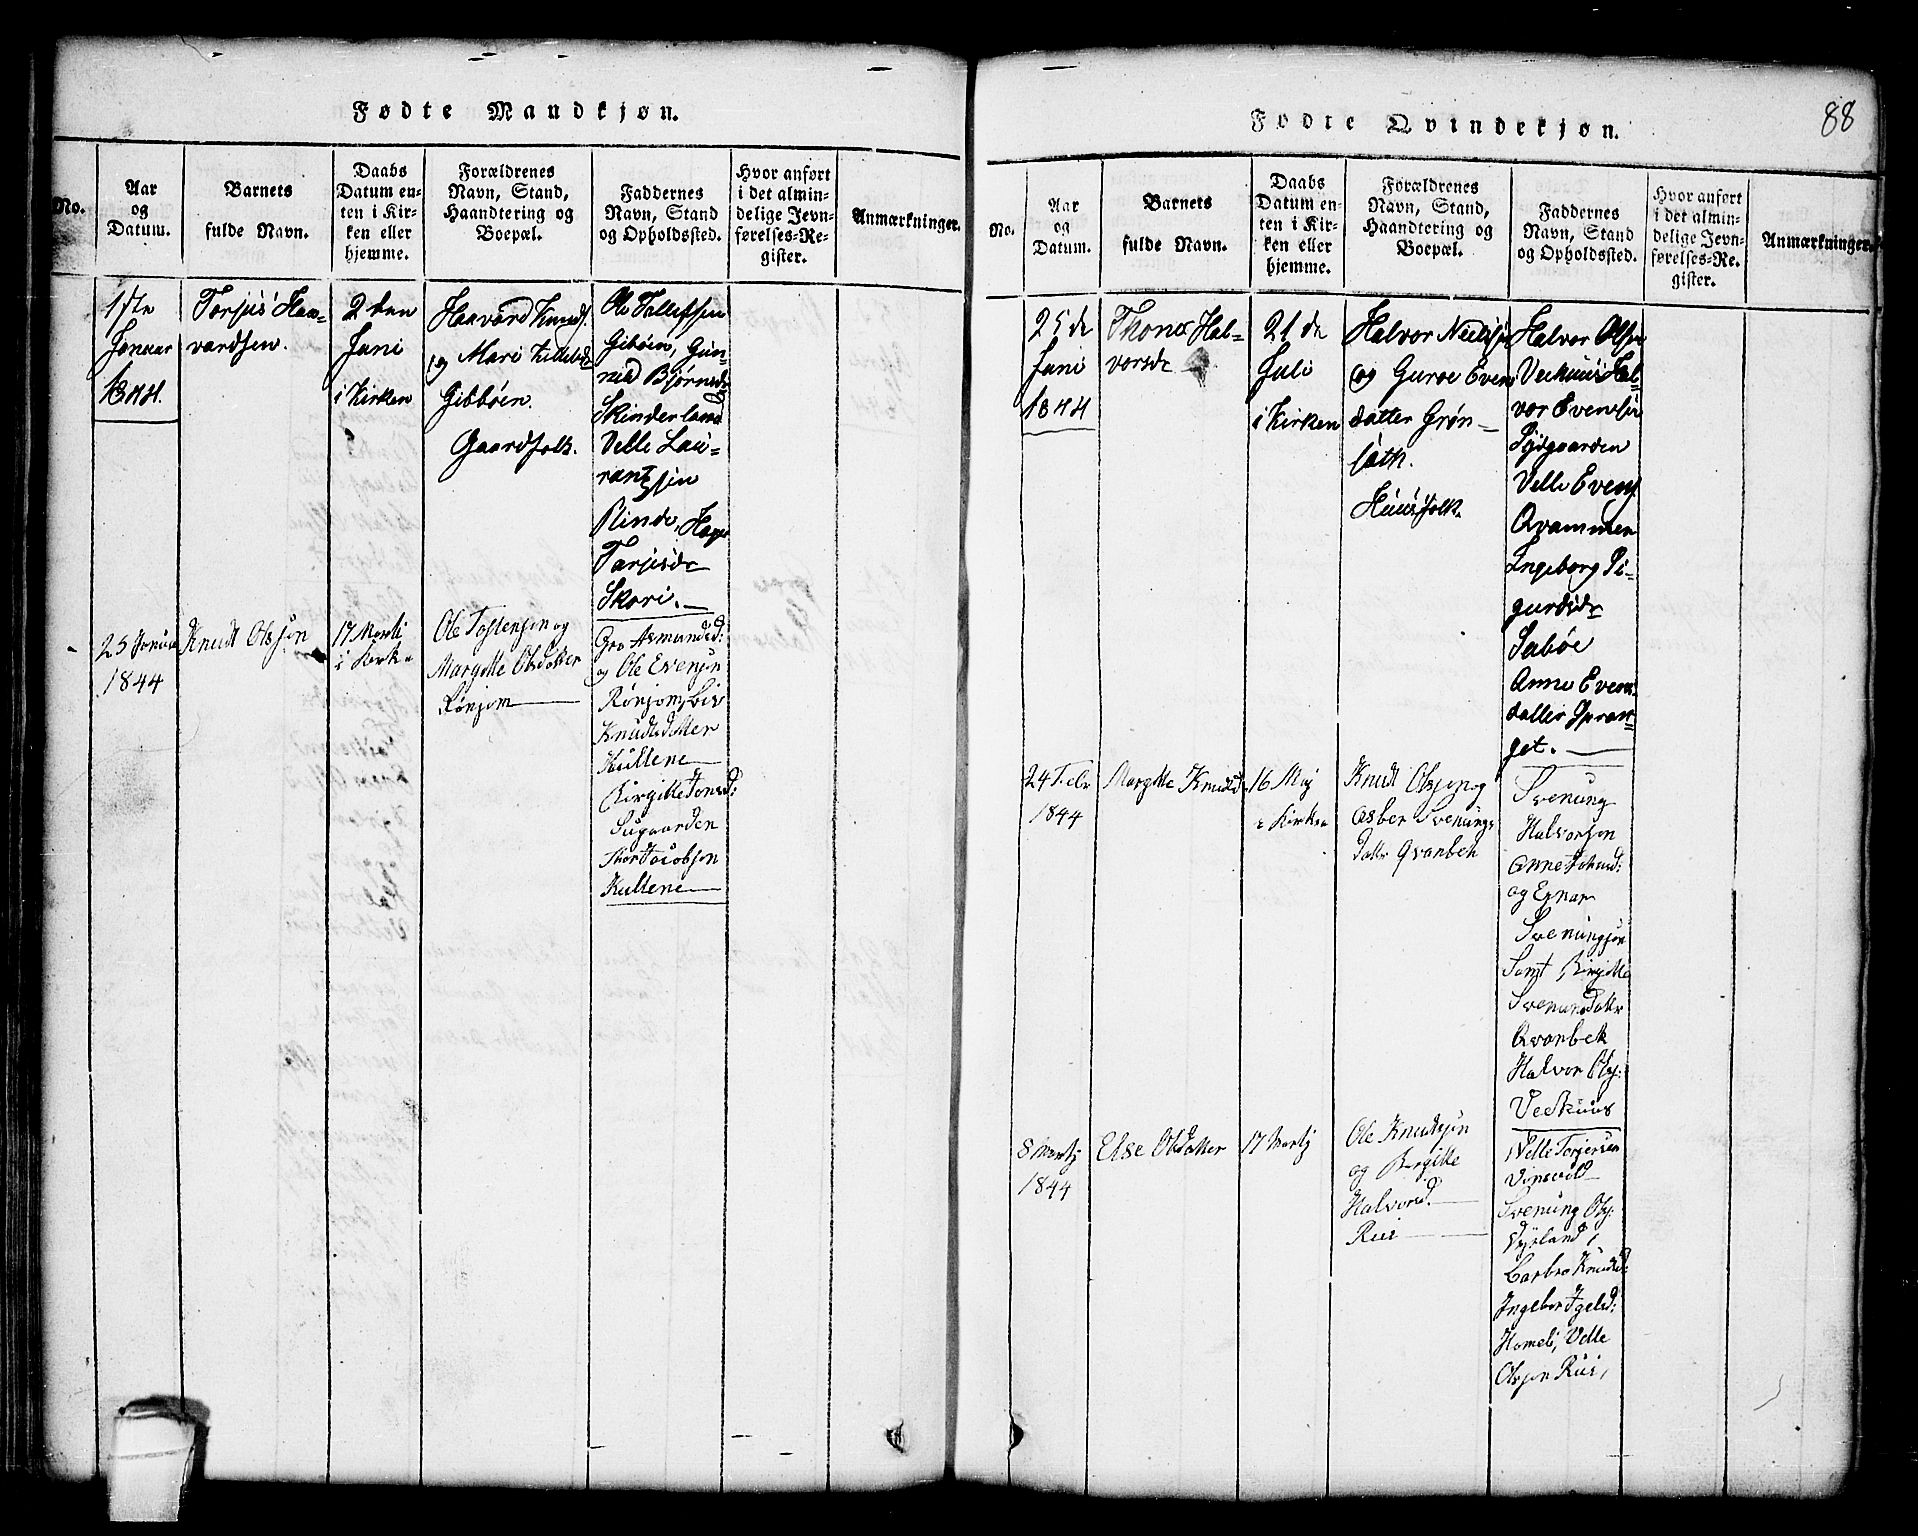 88
Fødte Mandkjøn.
No.
Aar
og
Datum.
Barnets
fulde Navn.
Daabs
Datum en-
ten i Kir-
ken eller
hjemme.
Forældrenes
Navn, Stand,
Haandtering og
Boepæl.
Faddernes
Navn, Stand
og Opholdssted.
Hvor anført
i det almin-
delige Jevn-
førelses-Re-
gister.
Anmærkninger.
1ste
Januar
1844.
Torjus Haa-
vardsen.
2den
Juni
i Kirken
Haavord Knuds.
og Mari
Gibbøen.
Gaardfolk.
Ole Tollefsen
Gibøen, Gun-
nild Bjørnsdr
Skinderland
Velle Lau-
rantzsen
Rinde,
Tarjisdr
Skori.
25 Januar
1844
Knudt Olssøn
17 Marti
i Kirke
Ole Tostensøn og
Margitte Olsdatter
Rønjom
Gro Asmundsd:
og Ole Evensøn
Rønjom, Liv
Knudtsdatter
Kultene
Birgitte Tonsd:
Sugaarden
Thor Jacobsøn
Kultene
Fødte Qvindekjøn.
No.
Aar
og
Datum.
Barnets
fulde Navn.
Daabs
Datum en-
ten i Kir-
ken eller
hjemme.
Forældrenes
Navn, Stand,
Haandtering og
Boepæl.
Faddernes
Navn, Stand
og Opholdssted.
Hvor anført
i det almin-
delige Jevn-
førelses-Re-
gister.
Anmærkninger.
25de
Juni
1844
Thone Hal-
vorsdr
21de
Juli
i Kirken
Halvor Neelsøn
og Guroe Evens
datter Grøn-
lath.
Huusfolk.
Halvor Olsen
Veehuus Hal-
vor Evensen
Sydgaarden
Velle Evens.
Qvammen
Ingeborg Si-
gurdsdr
Sabøe
Anne Evens
datter Spran-
get.
24 Febr
1844
Margitte Knudsd
16 Maj
i Kirke
Knudt Olssøn og
Asber Svenungs
datter Qvanbek
Svenung
Halvorsøn
og Egnar
Svenungsøn
Samt Birgitte
Svenunsdatter
Qvanbek
Halvor Ols:
Veehuus
8 Martj
1844
Else Olsdatter
17 Martj
Ole Knudtsøn
og Birgitte
Halvorsd.
Rui
Velle Torjersen
Vinsvald
Svenung Ols:
Barbro Knudsd:
Homeli, Velle
Olssøn Rui,